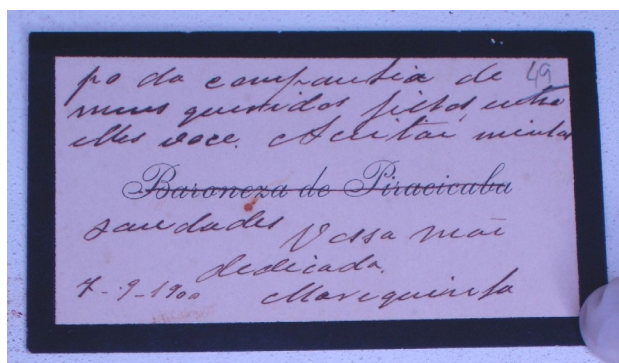 49
po da companhia de
meus queridos filhos, entre
elles voce. Aceitai minhas
Baroneza de Piracicaba
saudades Vossa mãi
dedicada.
7-9-1900 Mariquinha